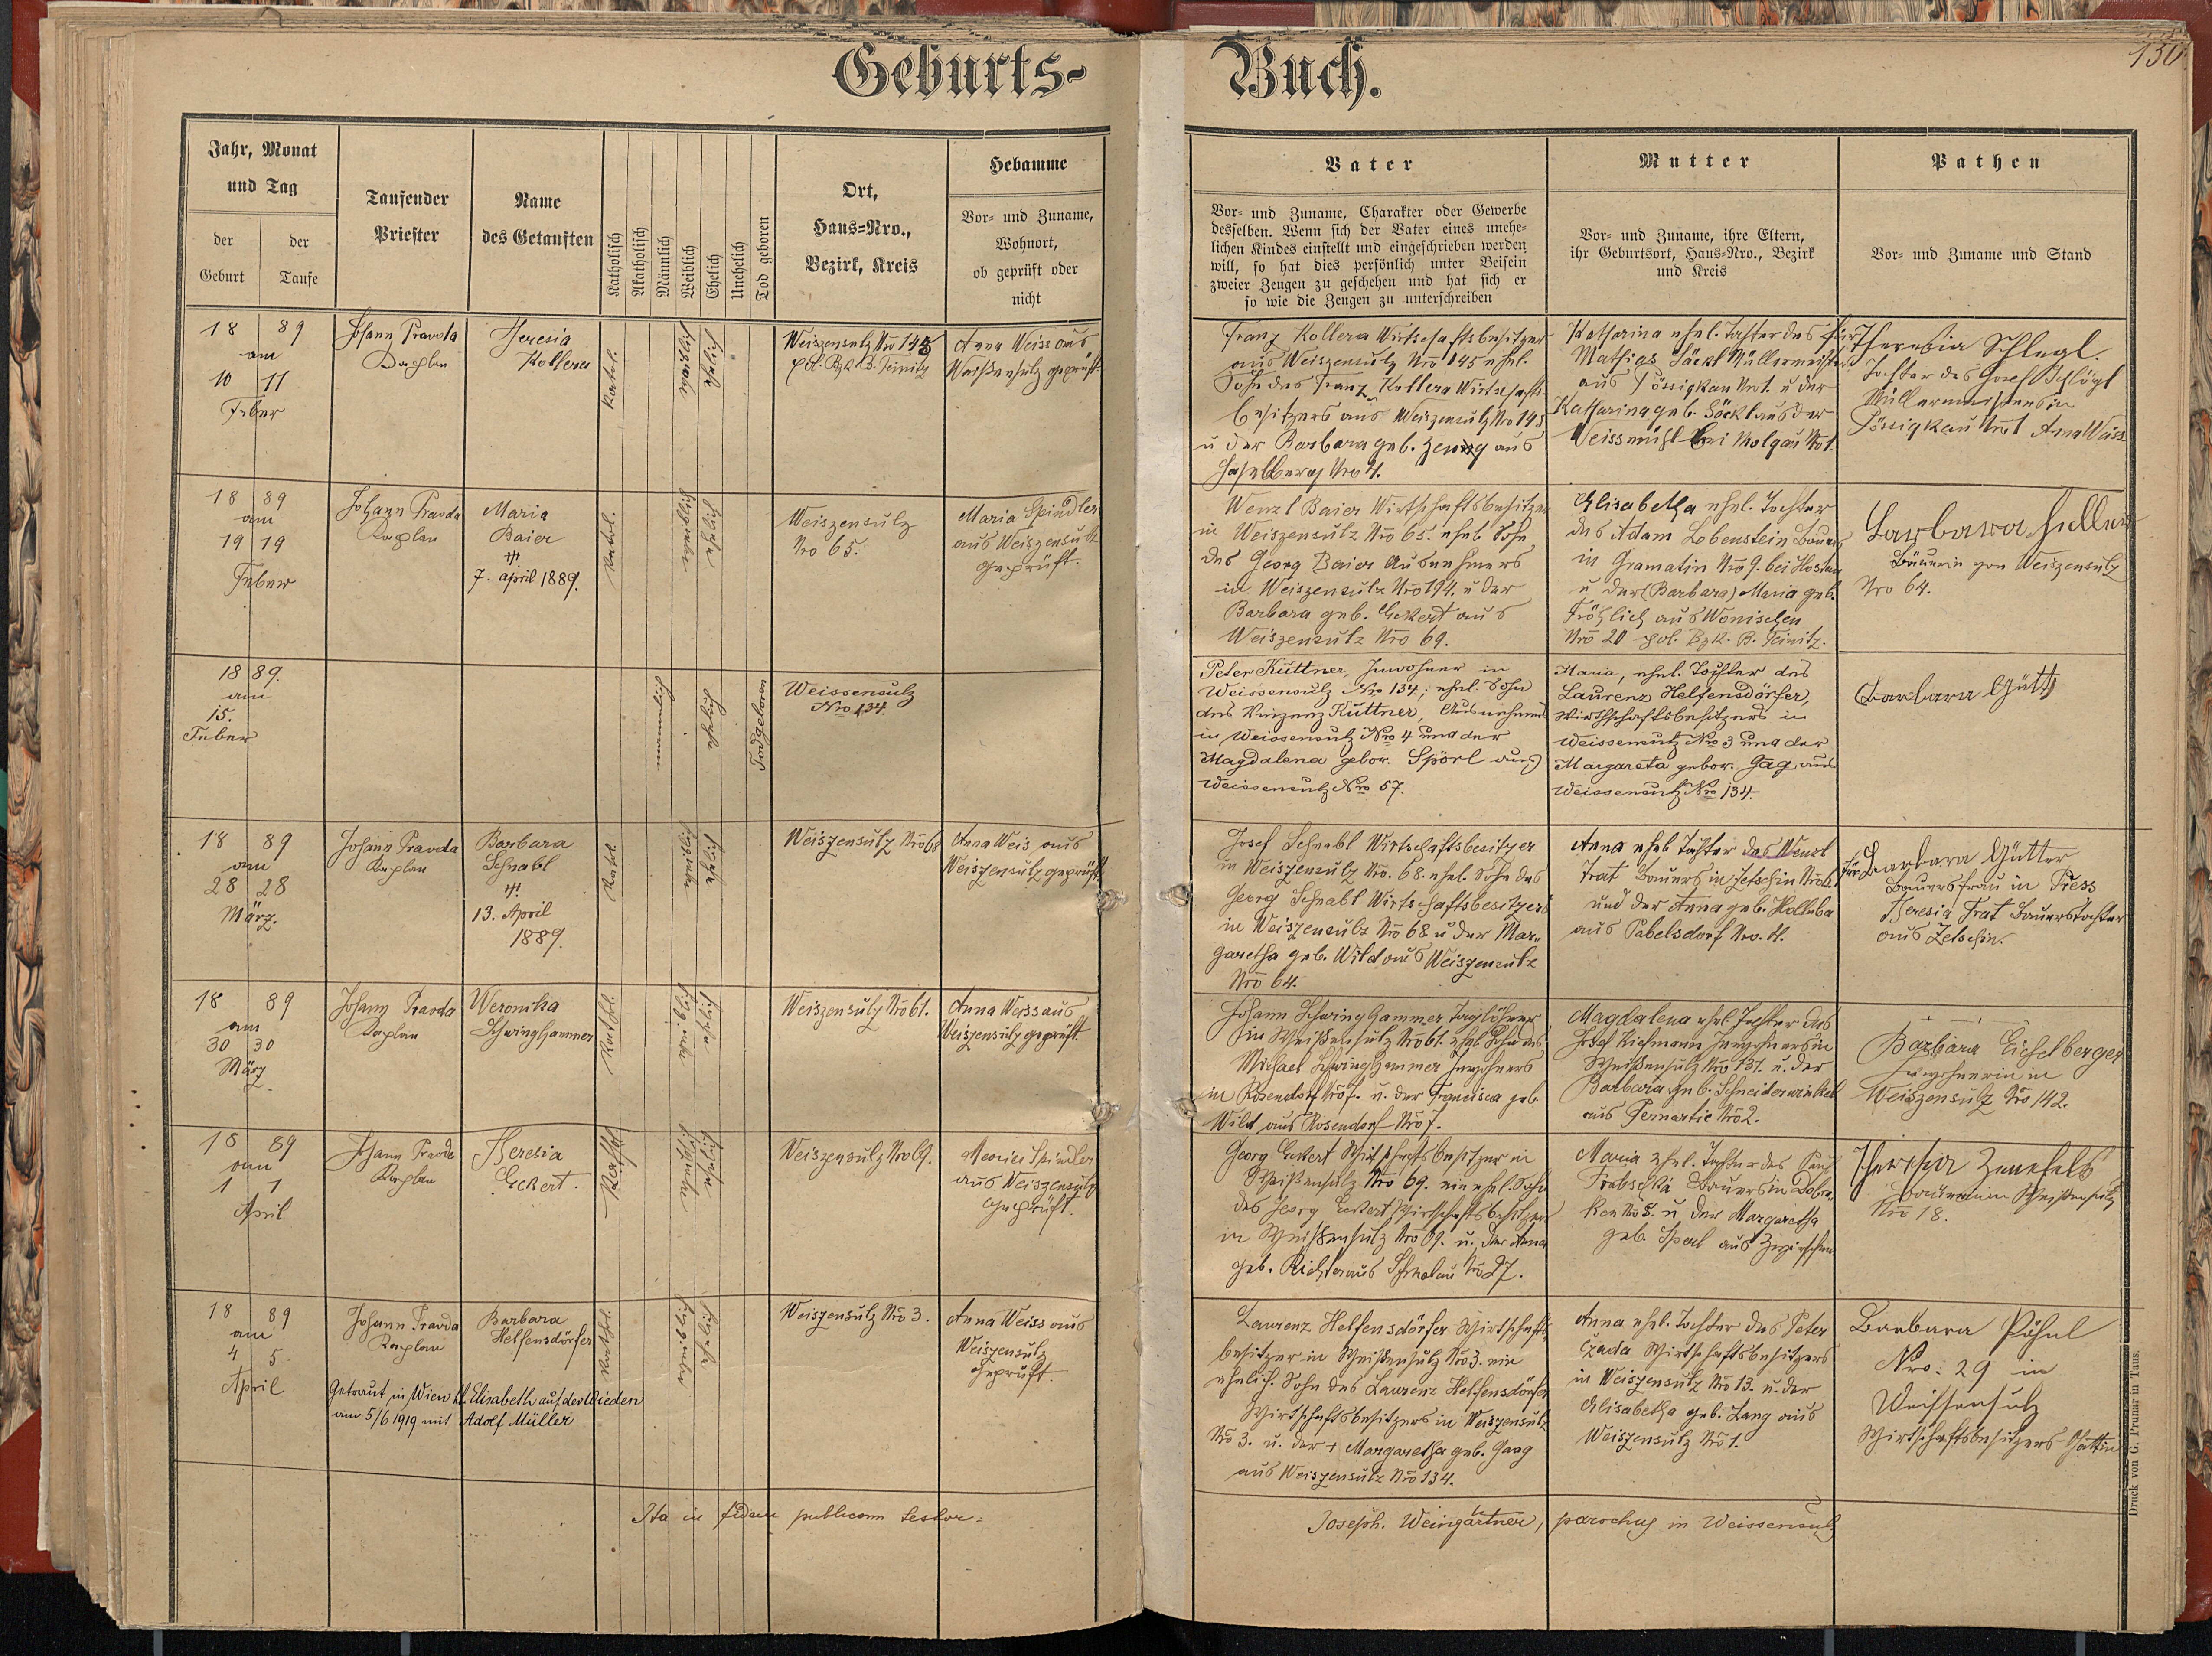 150
Geburts- Buch.
Jahr, Monat
und Tag
der
Geburt
der
Taufe
Taufender
Priester
Name
des Getauften
Katholisch
Akatholisch
Männlich
Weiblich
Ehelich
Unehelich
Tod geboren
Ort,
Haus=Nro.,
Bezirk, Kreis
Hebamme
Vor= und Zuname,
Wohnort,
ob geprüft oder
nicht
Vater
Vor= und Zuname, Charakter oder Gewerbe
desselben. Wenn sich der Vater eines unehe=
lichen Kindes einstellt und eingeschrieben werden
will, so hat dies persönlich unter Beisein
zweier Zeugen zu geschehen und hat sich er
so wie die Zeugen zu unterschreiben
Mutter
Vor= und Zuname, ihre Eltern,
ihr Geburtsort, Haus=Nro., Bezirk
und Kreis
Pathen
Vor= und Zuname und Stand
18 89
am
10 11
Feber
Johann Pravda
Kaplan
Theresia
Kollera
Kathol.
Weiszensulz Nro 145
pol. Bzk. B. Teinitz
Anna Weiss aus
Weißensulz geprüft
Franz Kollera Wirtschaftsbesitzer
aus Weiszensulz Nro 145 ehel.
Sohn des Franz Kollera Wirtschafts
besitzers aus Weiszensulz Nro 145
u der Barbara geb. aus
Haselberg Nro 4.
Katharina ehel. Tochter des
Mathias Säckl Müllermeister
aus Pössigkau Nro 1. u der
Katharina geb. Böckl aus der
Weissmühl bei Wolgau No 1.
für Theresia Schlegl.
Tochter des Josef Schlögl
Müllermeisters in
Pössigkau Nro 1 Anna Weiss
18 89
am
19 19
Feber
Johann Pravda
Kaplan
Maria
Baier
7. April 1889.
Kathol.
Weiszensulz
Nro 65.
Maria Spindler
aus Weiszensulz
geprüft.
Wenzl Baier Wirtschaftsbesitzer
in Weiszensulz Nro 65. ehel. Sohn
des Georg Baier Ausnehmers
in Weiszensulz Nro 194. u der
Barbara geb. Eckert aus
Weiszensulz Nro 69.
Elisabetha ehel. Tochter
des Adam Lobenstein Bauers
in Gramatin Nro 9. bei Hostau
u der (Barbara) Maria geb.
Fröhlich aus Wonischen
Nro 20 pol. Bzk. B. Teinitz.
Barbara Heller
Bäuerin von Weiszensulz
Nro 64.
18 89.
am
15.
Feber
Todgeboren
Weissensulz
Nro 134.
Peter Küttner, Inwohner in
Weissensulz Nro 134; ehel. Sohn
des Vinzenz Küttner, Ausnehmers
in Weissensulz Nro 4 und der
Magdalena gebor. Spörl aus
Weissensulz Nro 57.
Maria, ehel. Tochter des
Laurenz Helfensdörfer,
Wirthschaftsbesitzers in
Weissensulz Nro 3 und der
Margareta gebor. Gag aus
Weissensulz Nro 134.
Barbara Gütt
18 89
am
28 28
März.
Johann Pravda
Kaplan
Barbara
Schnabl
13. April
1889.
Kathol.
Weiszensulz Nro 68
Anna Weis aus
Weiszensulz geprüft
Josef Schnabl Wirtschaftsbesitzer
in Weiszensulz No. 68. ehel. Sohn des
Georg Schnabl Wirtschaftsbesitzers
in Weiszensulz Nro 68 u der Mar„
garetha geb. Wild aus Weiszensulz
Nro 64.
Anna ehel. Tochter des Wenzl
Trat Bauers in Zetschin
und der Anna geb. Holluba
aus Pabelsdorf Nro.
für Barbara Gütter
Bauersfrau in Press
Theresia Trat Bauerstochter
aus Zetschin.
18 89
am
30 30
März
Johann Pravda
Kaplan
Weronika
Schwinghammer
Kathol.
Weiszensulz Nro 61.
Anna Weiss aus
Weiszensulz geprüft
Johann Schwinghammer Taglöhner
in Weißensulz Nro 61. ehel. Sohn des
Michael Schwinghammer Inwohners
in Rosendorf Nro 7. u. der Francisca geb.
Wild aus Rosendorf Nro 7.
Magdalena ehel. Tochter des
Josef Kiehmann Inwohners in
Weißensulz Nro 131. u. der
Barbara geb. Schneiderwinkel
aus Pernartic Nro 2.
Barbara Eichelberger
Inwohnerin in
Weiszensulz Nro 142.
18 89
am
1 1
April
Johann Pravda
Kaplan
Theresia
Eckert.
Kathol.
Weiszensulz Nro 69.
Maria Spindler
aus Weiszensulz
geprüft.
Georg Eckert Wirtschaftsbesitzer in
Weißensulz Nro 69. ein ehel. Sohn
des Georg Eckert Wirtschaftsbesitzers
in Weißensulz Nro 69. u. der Anna
geb. Richter aus Nro 27.
Maria ehel. Tochter des
Bauers in Dobra„
ken Nro 5. u der Margaretha
geb. Sperl aus
Theresia Zenefels
Bäuerin in Weißensulz
Nro 18.
18 89
am
4 5
April
Johann Pravda
Kaplan
Barbara
Helfensdörfer
Kathol.
Getraut in Wien St. Elisabeth auf der Wieden
am 5/6 1919 mit Adolf Müller
Weiszensulz Nro 3.
Anna Weiss aus
Weiszensulz
geprüft.
Laurenz Helfensdörfer Wirtschafts„
besitzer in Weißensulz Nro 3. ein
ehelich. Sohn des Laurenz Helfensdörfer
Wirtschaftsbesitzers in Weiszensulz
Nro 3. u. der + Margaretha geb. Gaag
aus Weiszensulz Nro 134.
Anna ehel. Tochter des Peter
Czada Wirtschaftsbesitzers
in Weiszensulz Nro 13. u. der
Elisabetha geb. Lang aus
Weiszensulz Nro 1.
Barbara Pöhnl
Nro. 29 in
Weissensulz
Wirtschaftsbesitzers Gattin
Ita in fidem publicam testor =
Joseph. Weingärtner, parochus in Weissensulz
Druck von G. Prunar in Taus.